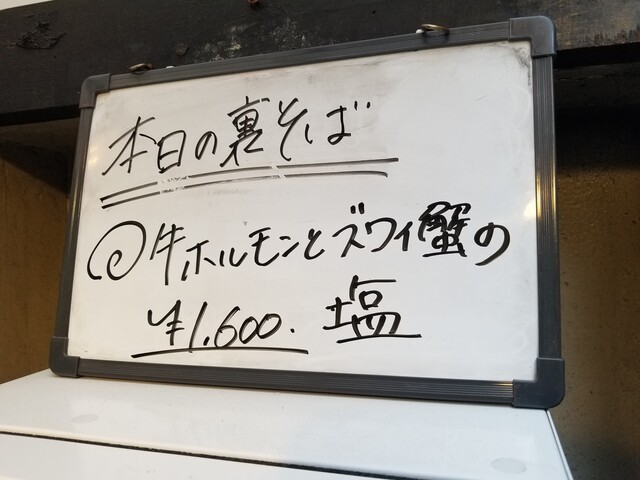 本日の裏そば
牛ホルモンとズワイ蟹の
¥1,600. 塩